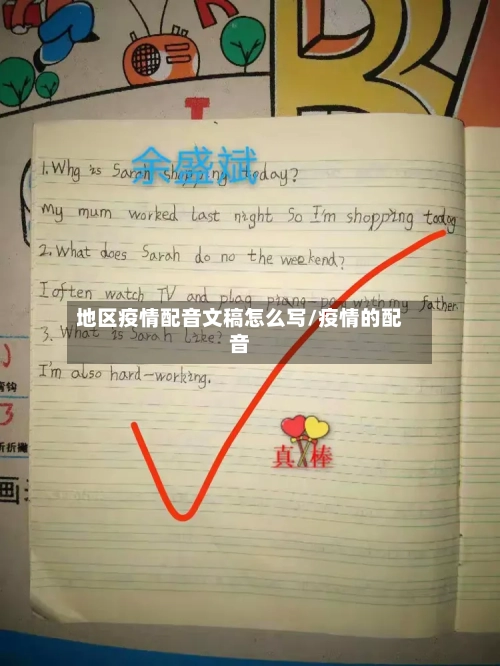 余盛斌
1.Why is Sarah shopping today?
My mum worked last night So I'm shopping today
2.What does Sarah do no the weekend?
I often watch TV and plag piang-pong with my father.
地区疫情配音文稿怎么写/疫情的配
音
3. What is Sarah Like?
I'm also hard-working.
真棒